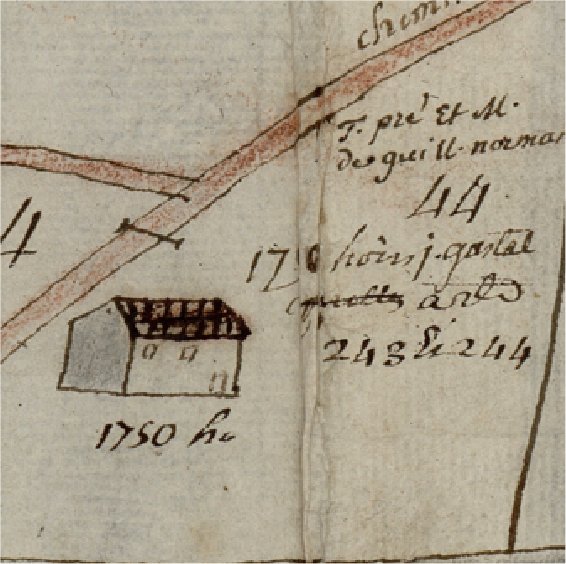 chemin
T. pre Et M.
de guill. norman
44
4
1750 hoirs j. gastal
243 Et 244
1750 h.